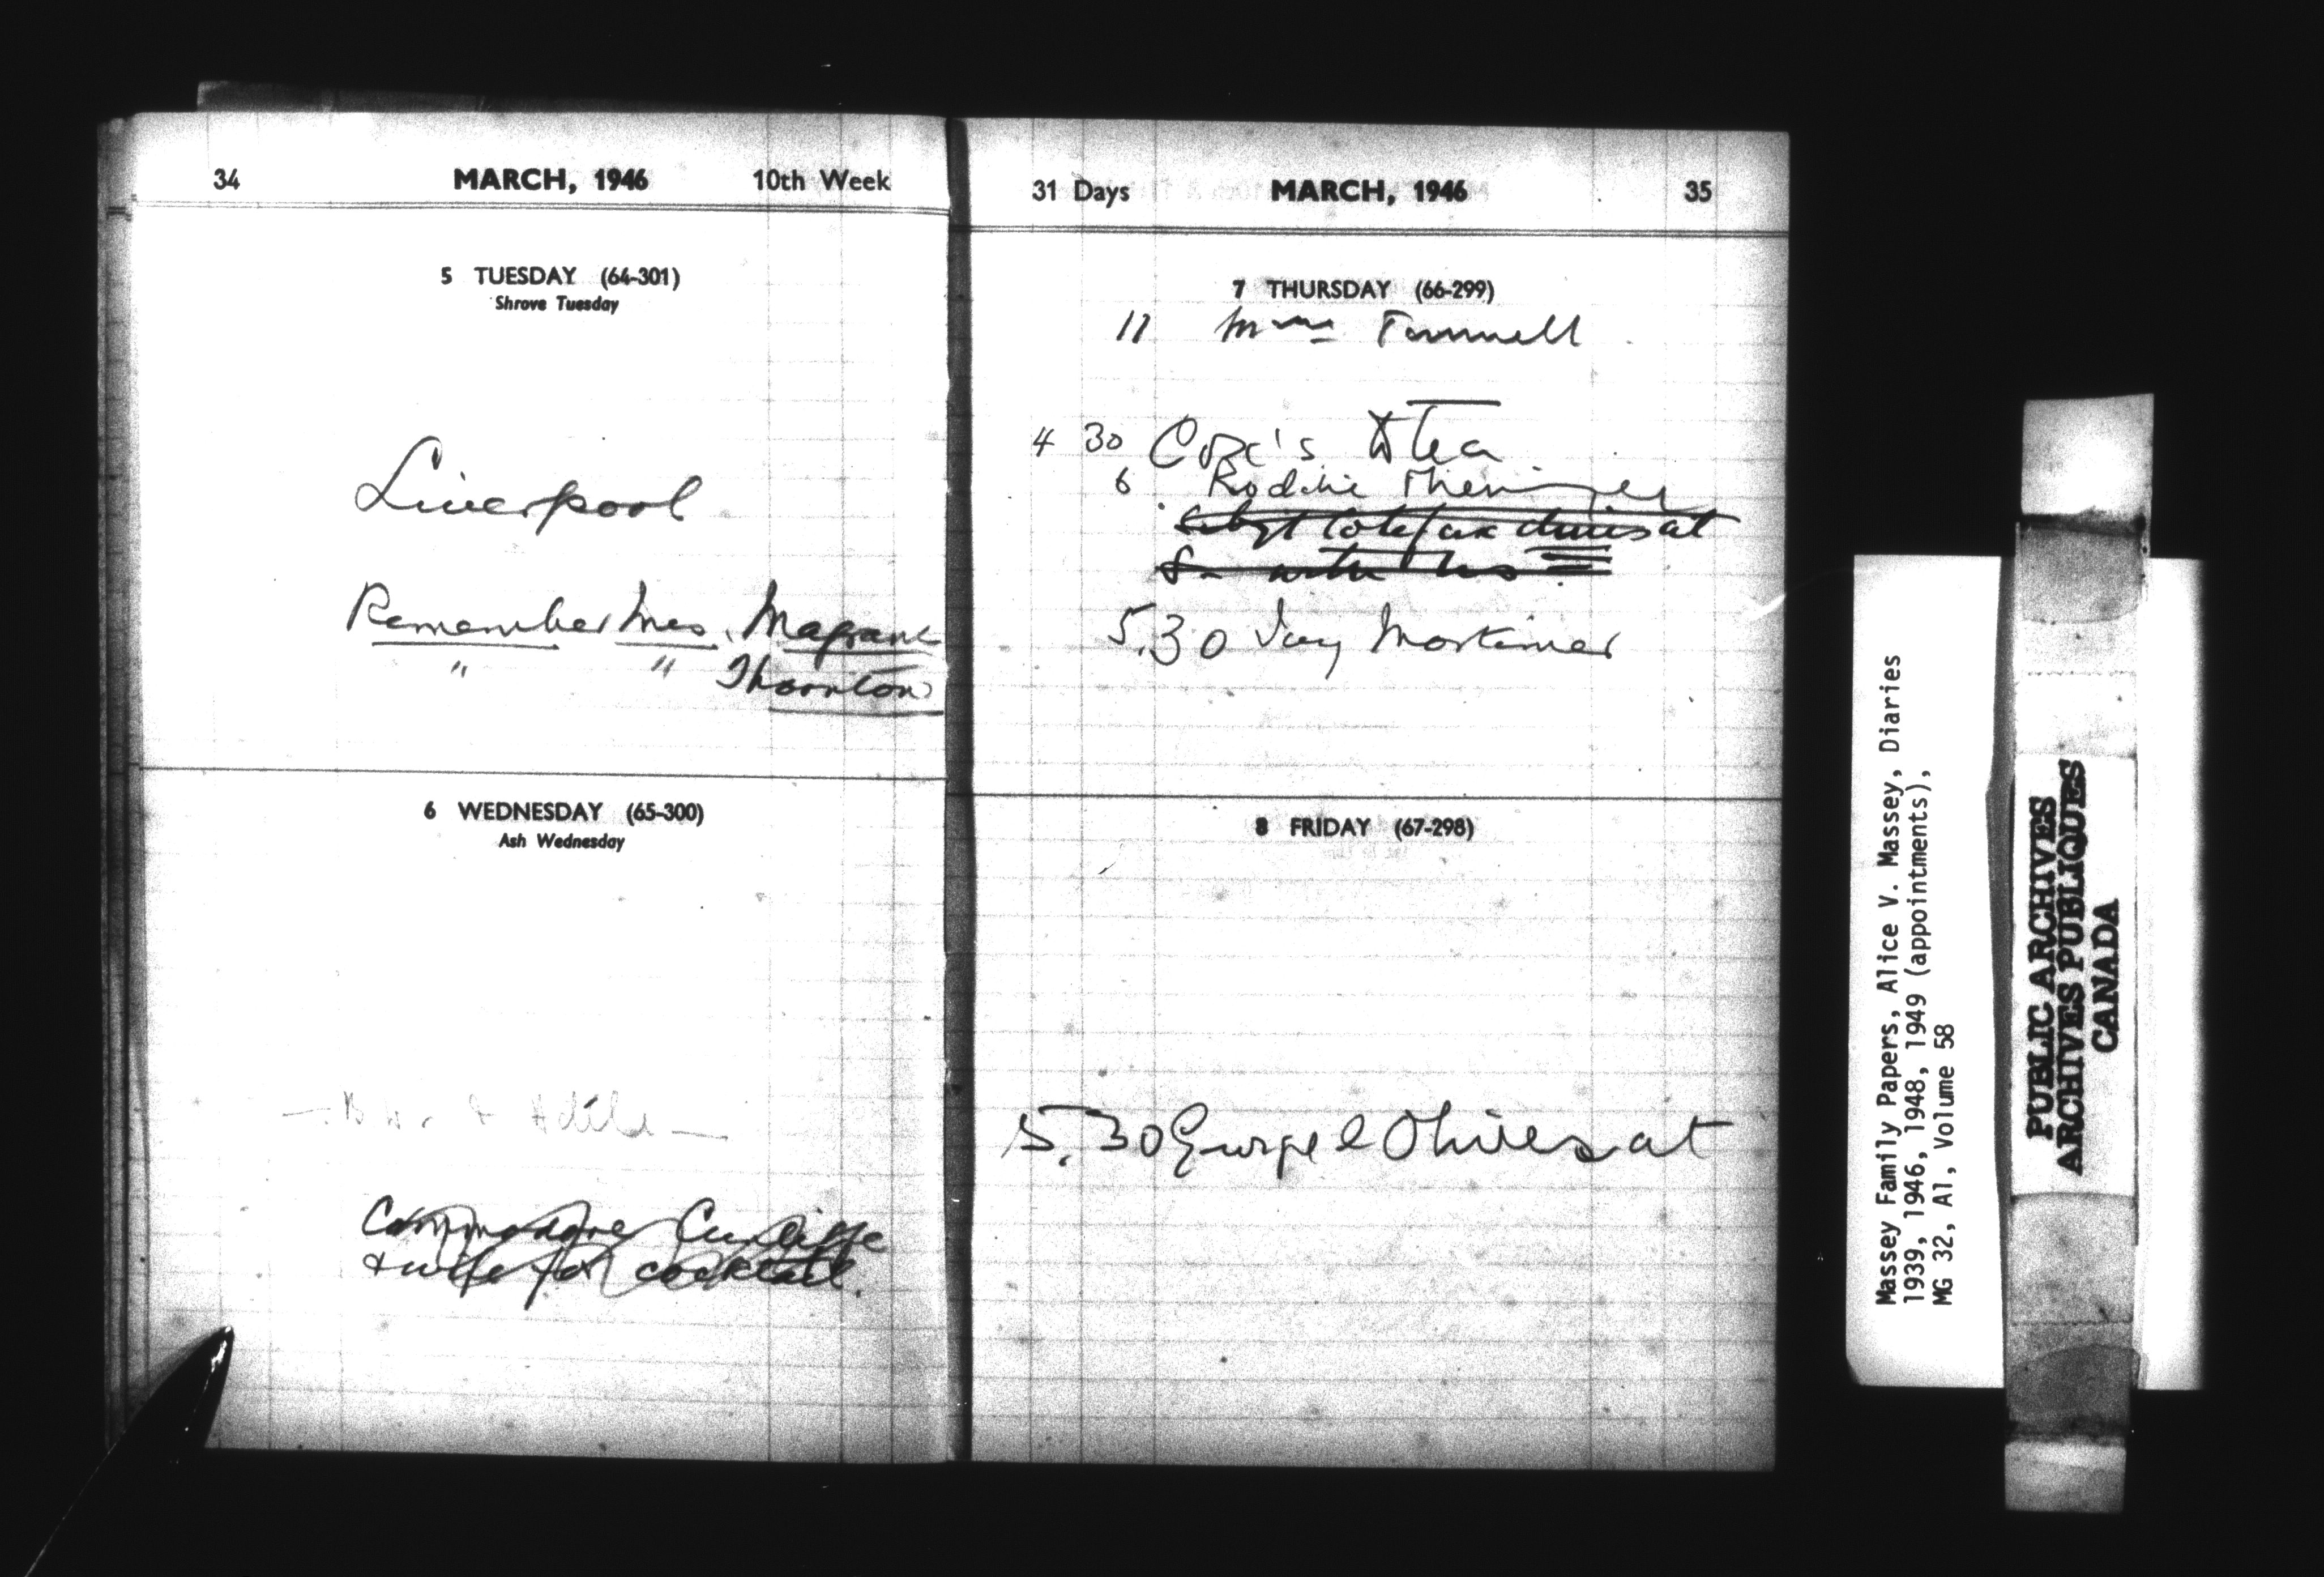 34 MARCH, 1946 10th Week
5 TUESDAY (64-301)
Shrove Tuesday
Liverpool
Remember Mrs. Magrane
" " Thornton
6 WEDNESDAY (65-300)
Ash Wednesday
Commodore Cunliffe
& wife for cocktail.
31 Days MARCH, 1946 35
7 THURSDAY (66-299)
11
4 30 Cox's Tea
6
dines at
5.30 Mortimer
8 FRIDAY (67-298)
5.30 George at
Massey Family Papers, Alice V. Massey, Diaries
1939, 1946, 1948, 1949 (appointments),
MG 32, A1, Volume 58
PUBLIC ARCHIVES
ARCHIVES PUBLIQUES
CANADA